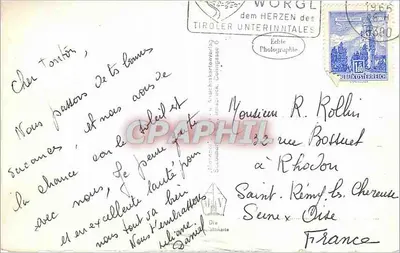 WÖRGL
dem HERZEN des
TIROLER UNTERINNTALES
1966
6300
Echte
Photographie
REPUBLIK ÖSTERREICH
Cher Tonton,
Nous passons de très bonnes
vacances, et nous avons de
la chance car le soleil est
avec nous, Je pense toute
et en excellente santé pour
nous tout va bien
Nous t'embrassons
Liliane
Daniel
CPAPHIL
Monsieur R. Rollin
32 rue Bossuet
à Rhodon
Saint. Rémy. les. Chevreuse
Seine x Oise
France